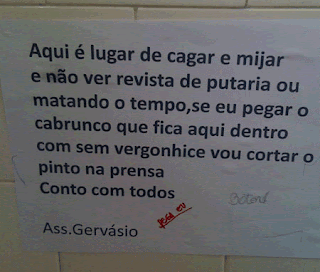 Aqui é lugar de cagar e mijar
e não ver revista de putaria ou
matando o tempo,se eu pegar o
cabrunco que fica aqui dentro
com sem vergonhice vou cortar o
pinto na prensa
Conto com todos
Ass.Gervásio